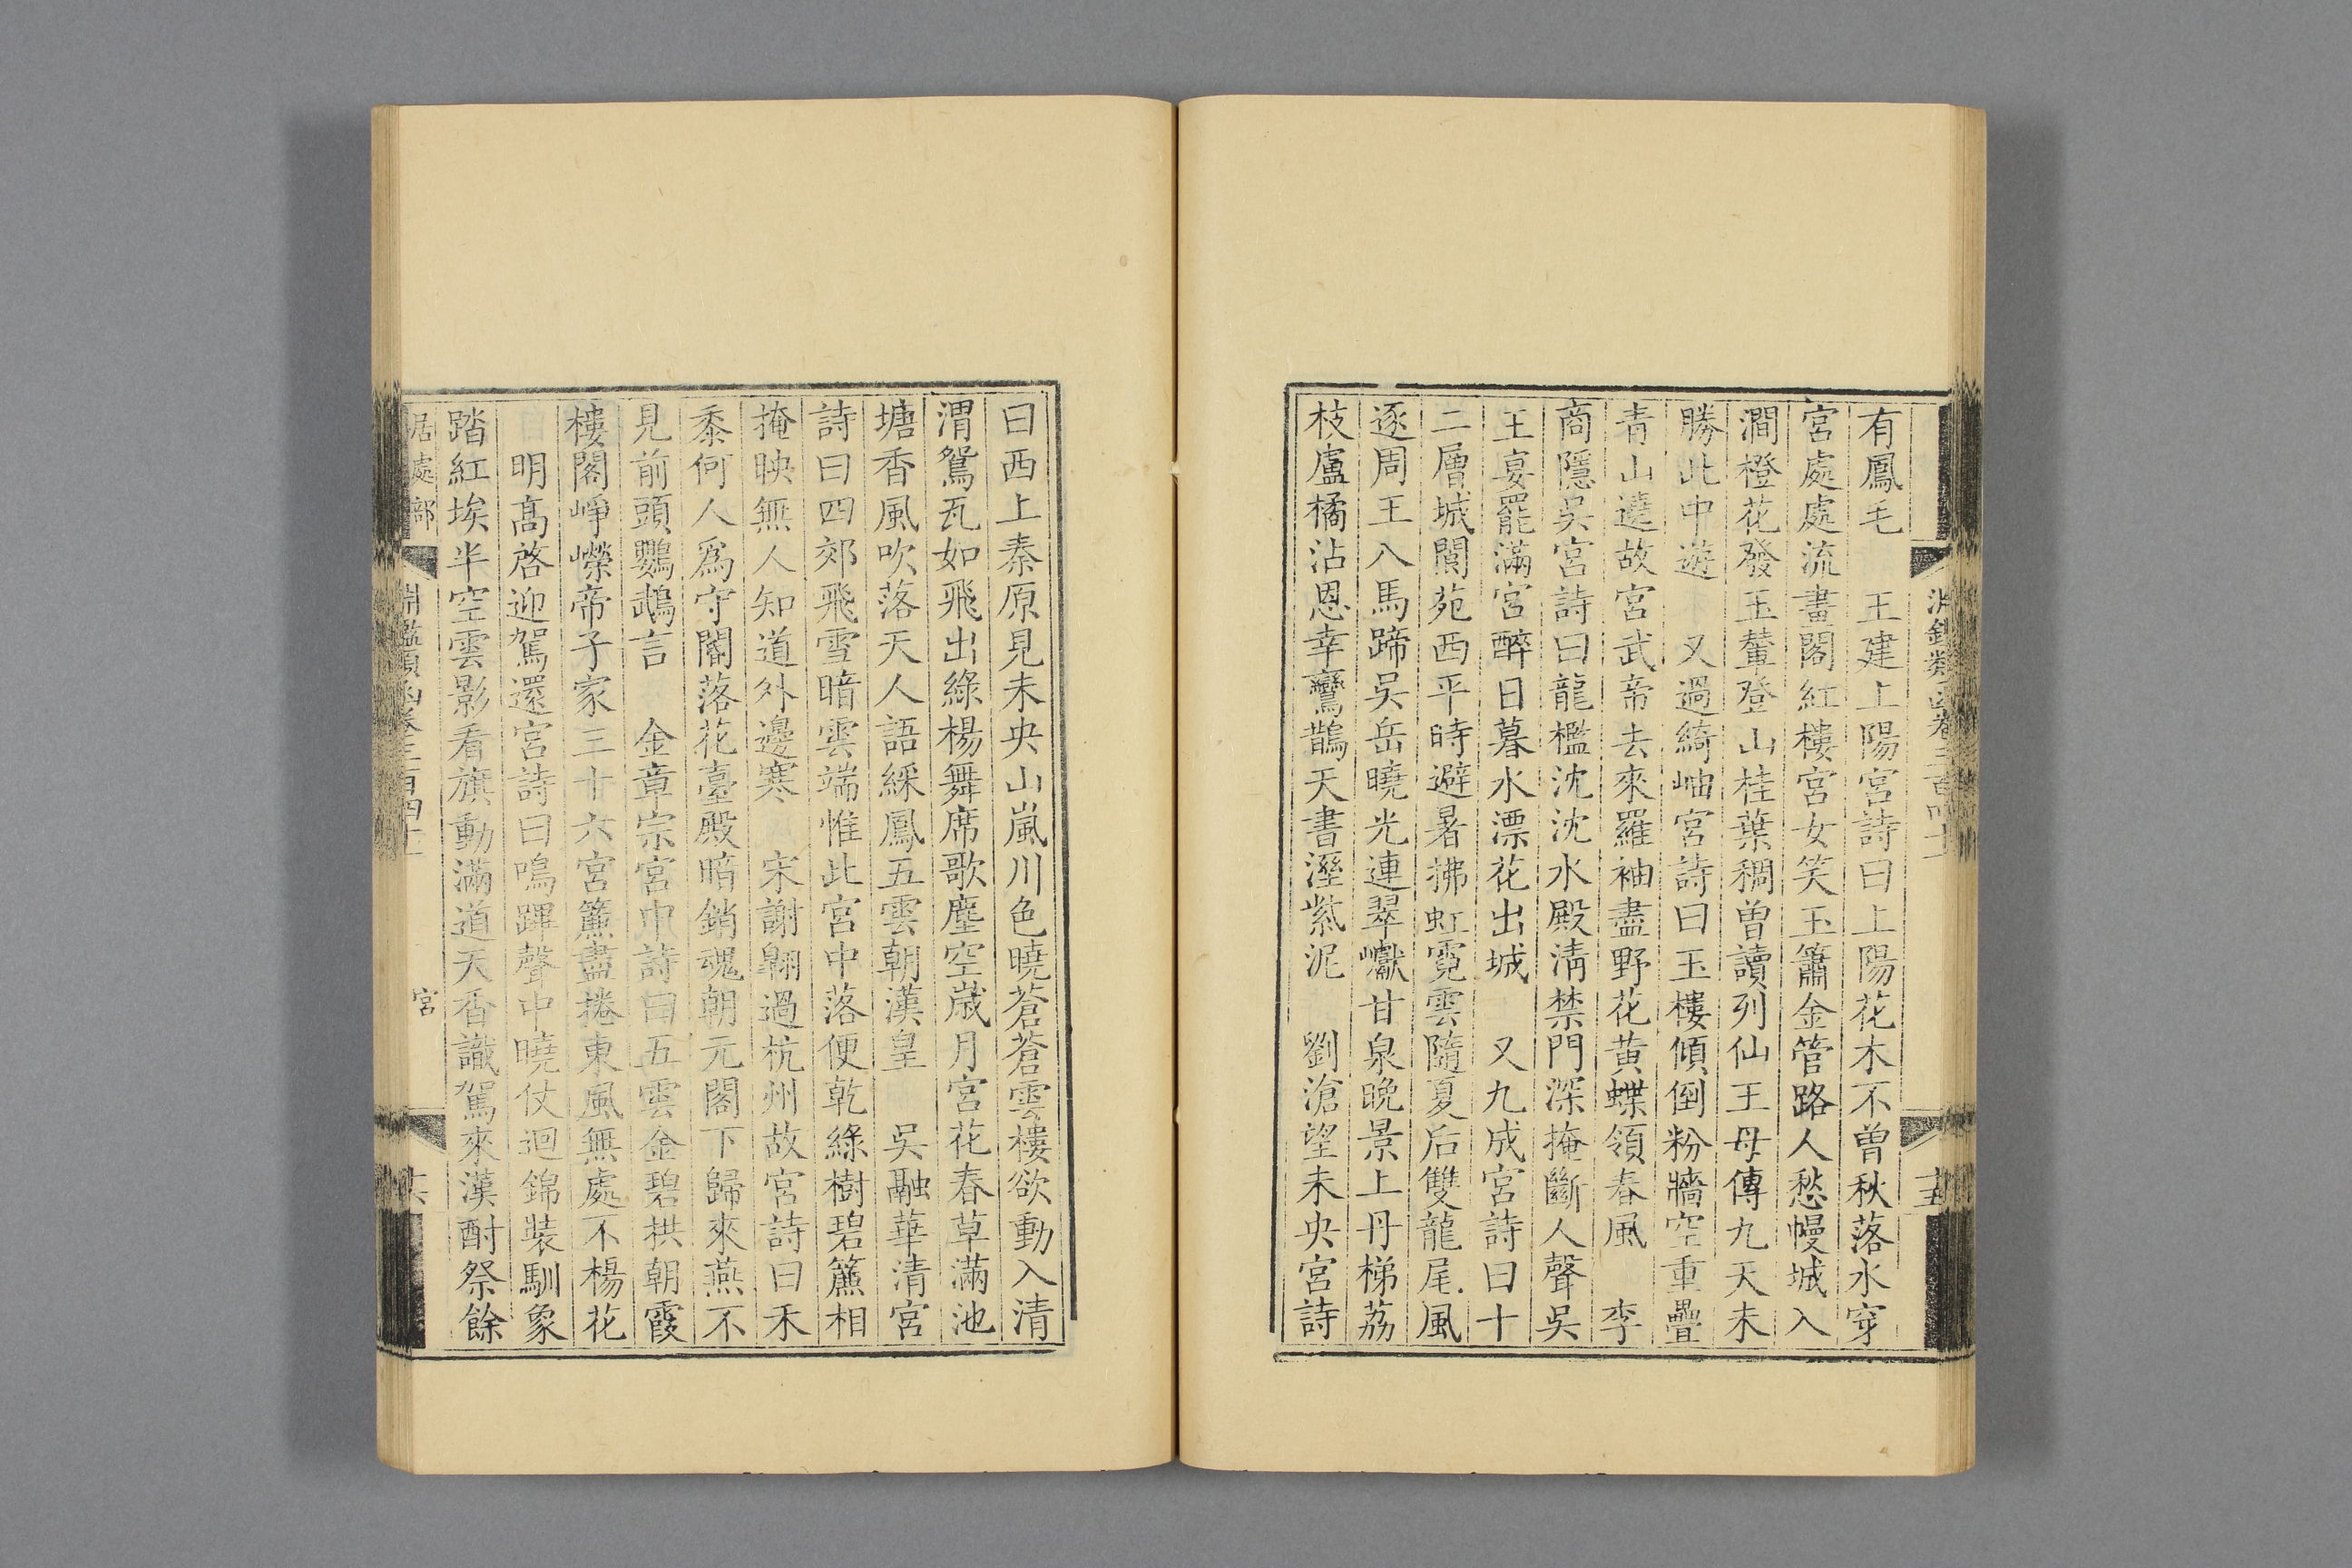 有鳳毛　王建上陽宮詩曰上陽花木不曾秋落水穿
宮處處流畫閣紅樓宮女笑玉簫金管路人愁幔城入
澗橙花發玉輦登山桂葉稠曾讀列仙王母傳九天未
勝此中遊　又過綺岫宮詩曰玉樓傾倒粉牆空重疊
青山遶故宮武帝去來羅袖盡野花黃蝶領春風　李
商隱吳宮詩曰龍檻沈沈水殿清禁門深掩斷人聲吳
王宴罷滿宮醉日暮水漂花出城　又九成宮詩曰十
二層城閬苑西平時避暑拂虹霓雲隨夏后雙龍尾風
逐周王八馬蹄吳岳曉光連翠巘甘泉晚景上丹梯荔
枝盧橘沾恩幸鸞鵲天書溼紫泥　劉滄望未央宮詩
曰西上秦原見未央山嵐川色曉蒼蒼雲樓欲動入清
渭鴛瓦如飛出綠楊舞席歌塵空歲月宮花春草滿池
塘香風吹落天人語綵鳳五雲朝漢皇　吳融華清宮
詩曰四郊飛雪暗雲端惟此宮中落便乾綠樹碧簾相
掩映無人知道外邊寒　宋謝翱過杭州故宮詩曰禾
黍何人爲守閽落花臺殿暗銷魂朝元閣下歸來燕不
見前頭鸚鵡言　金章宗宮中詩曰五雲金碧拱朝霞
樓閣崢嶸帝子家三十六宮簾盡捲東風無處不楊花
明高啓迎駕還宮詩曰鳴蹕聲中曉仗迴錦裝馴象
踏紅埃半空雲影看旗動滿道天香識駕來漢酎祭餘
居處部　淵鑑類函卷三百四十　宮